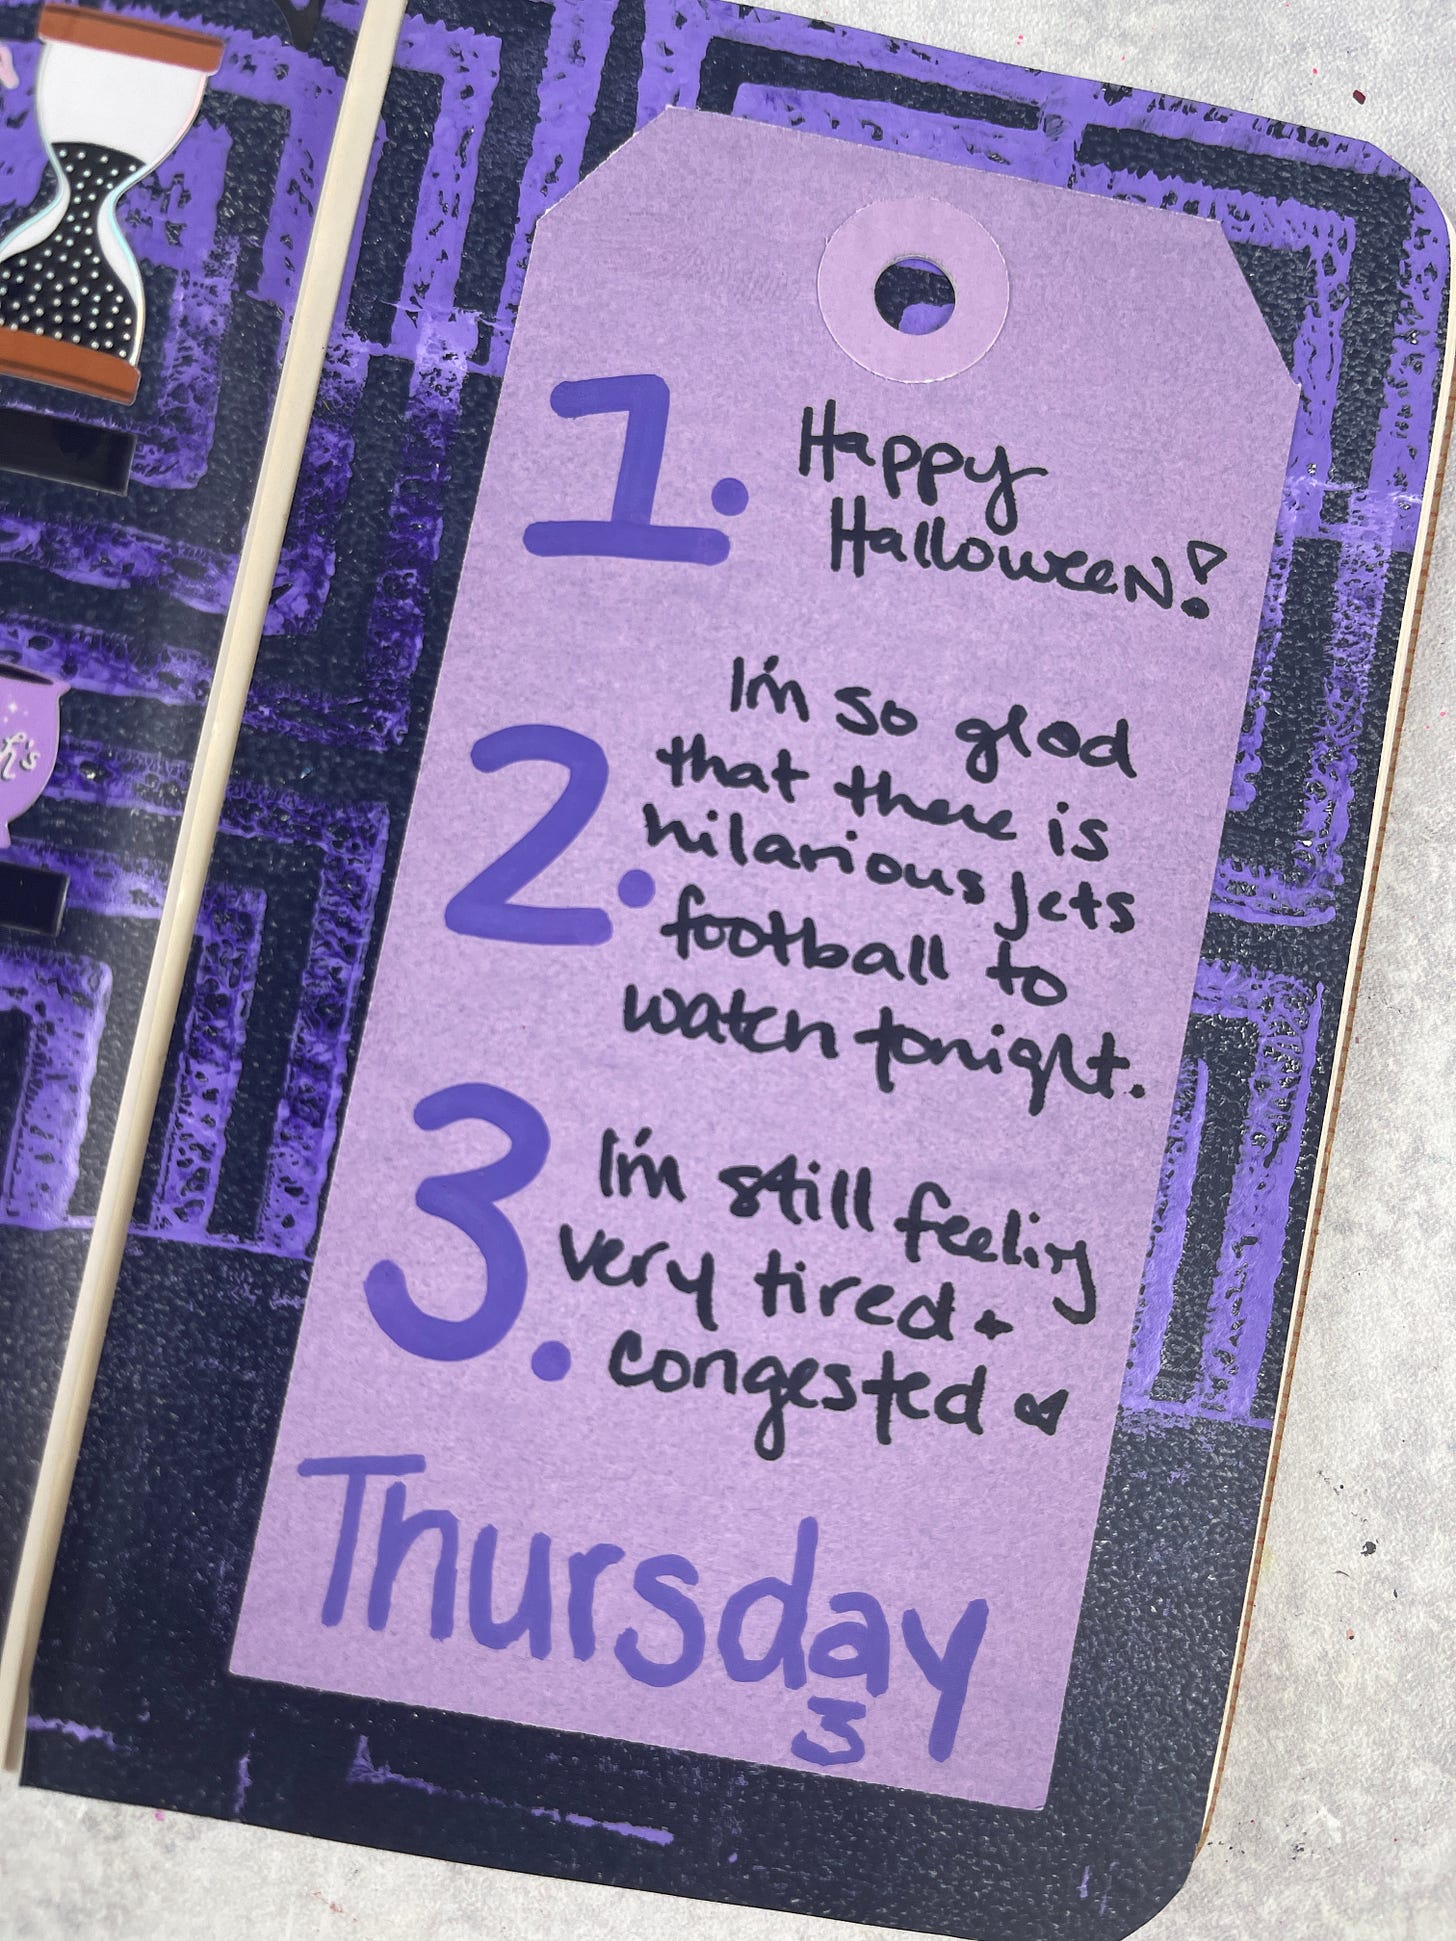 1. Happy
Halloween!
I'm so glad
that there is
hilarious Jets
2. football to
watch tonight.
I'm still feeling
very tired +
3. congested
Thursday
3